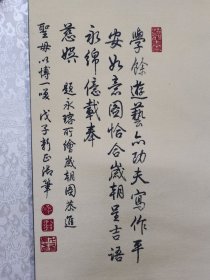 學餘遊藝亦功夫寫作平
安如意圖恰合歲朝呈吉語
永綿億載奉
慈娛 題永瑢所繪歲朝圖恭進
聖母以博一嘆 戊子新正御筆